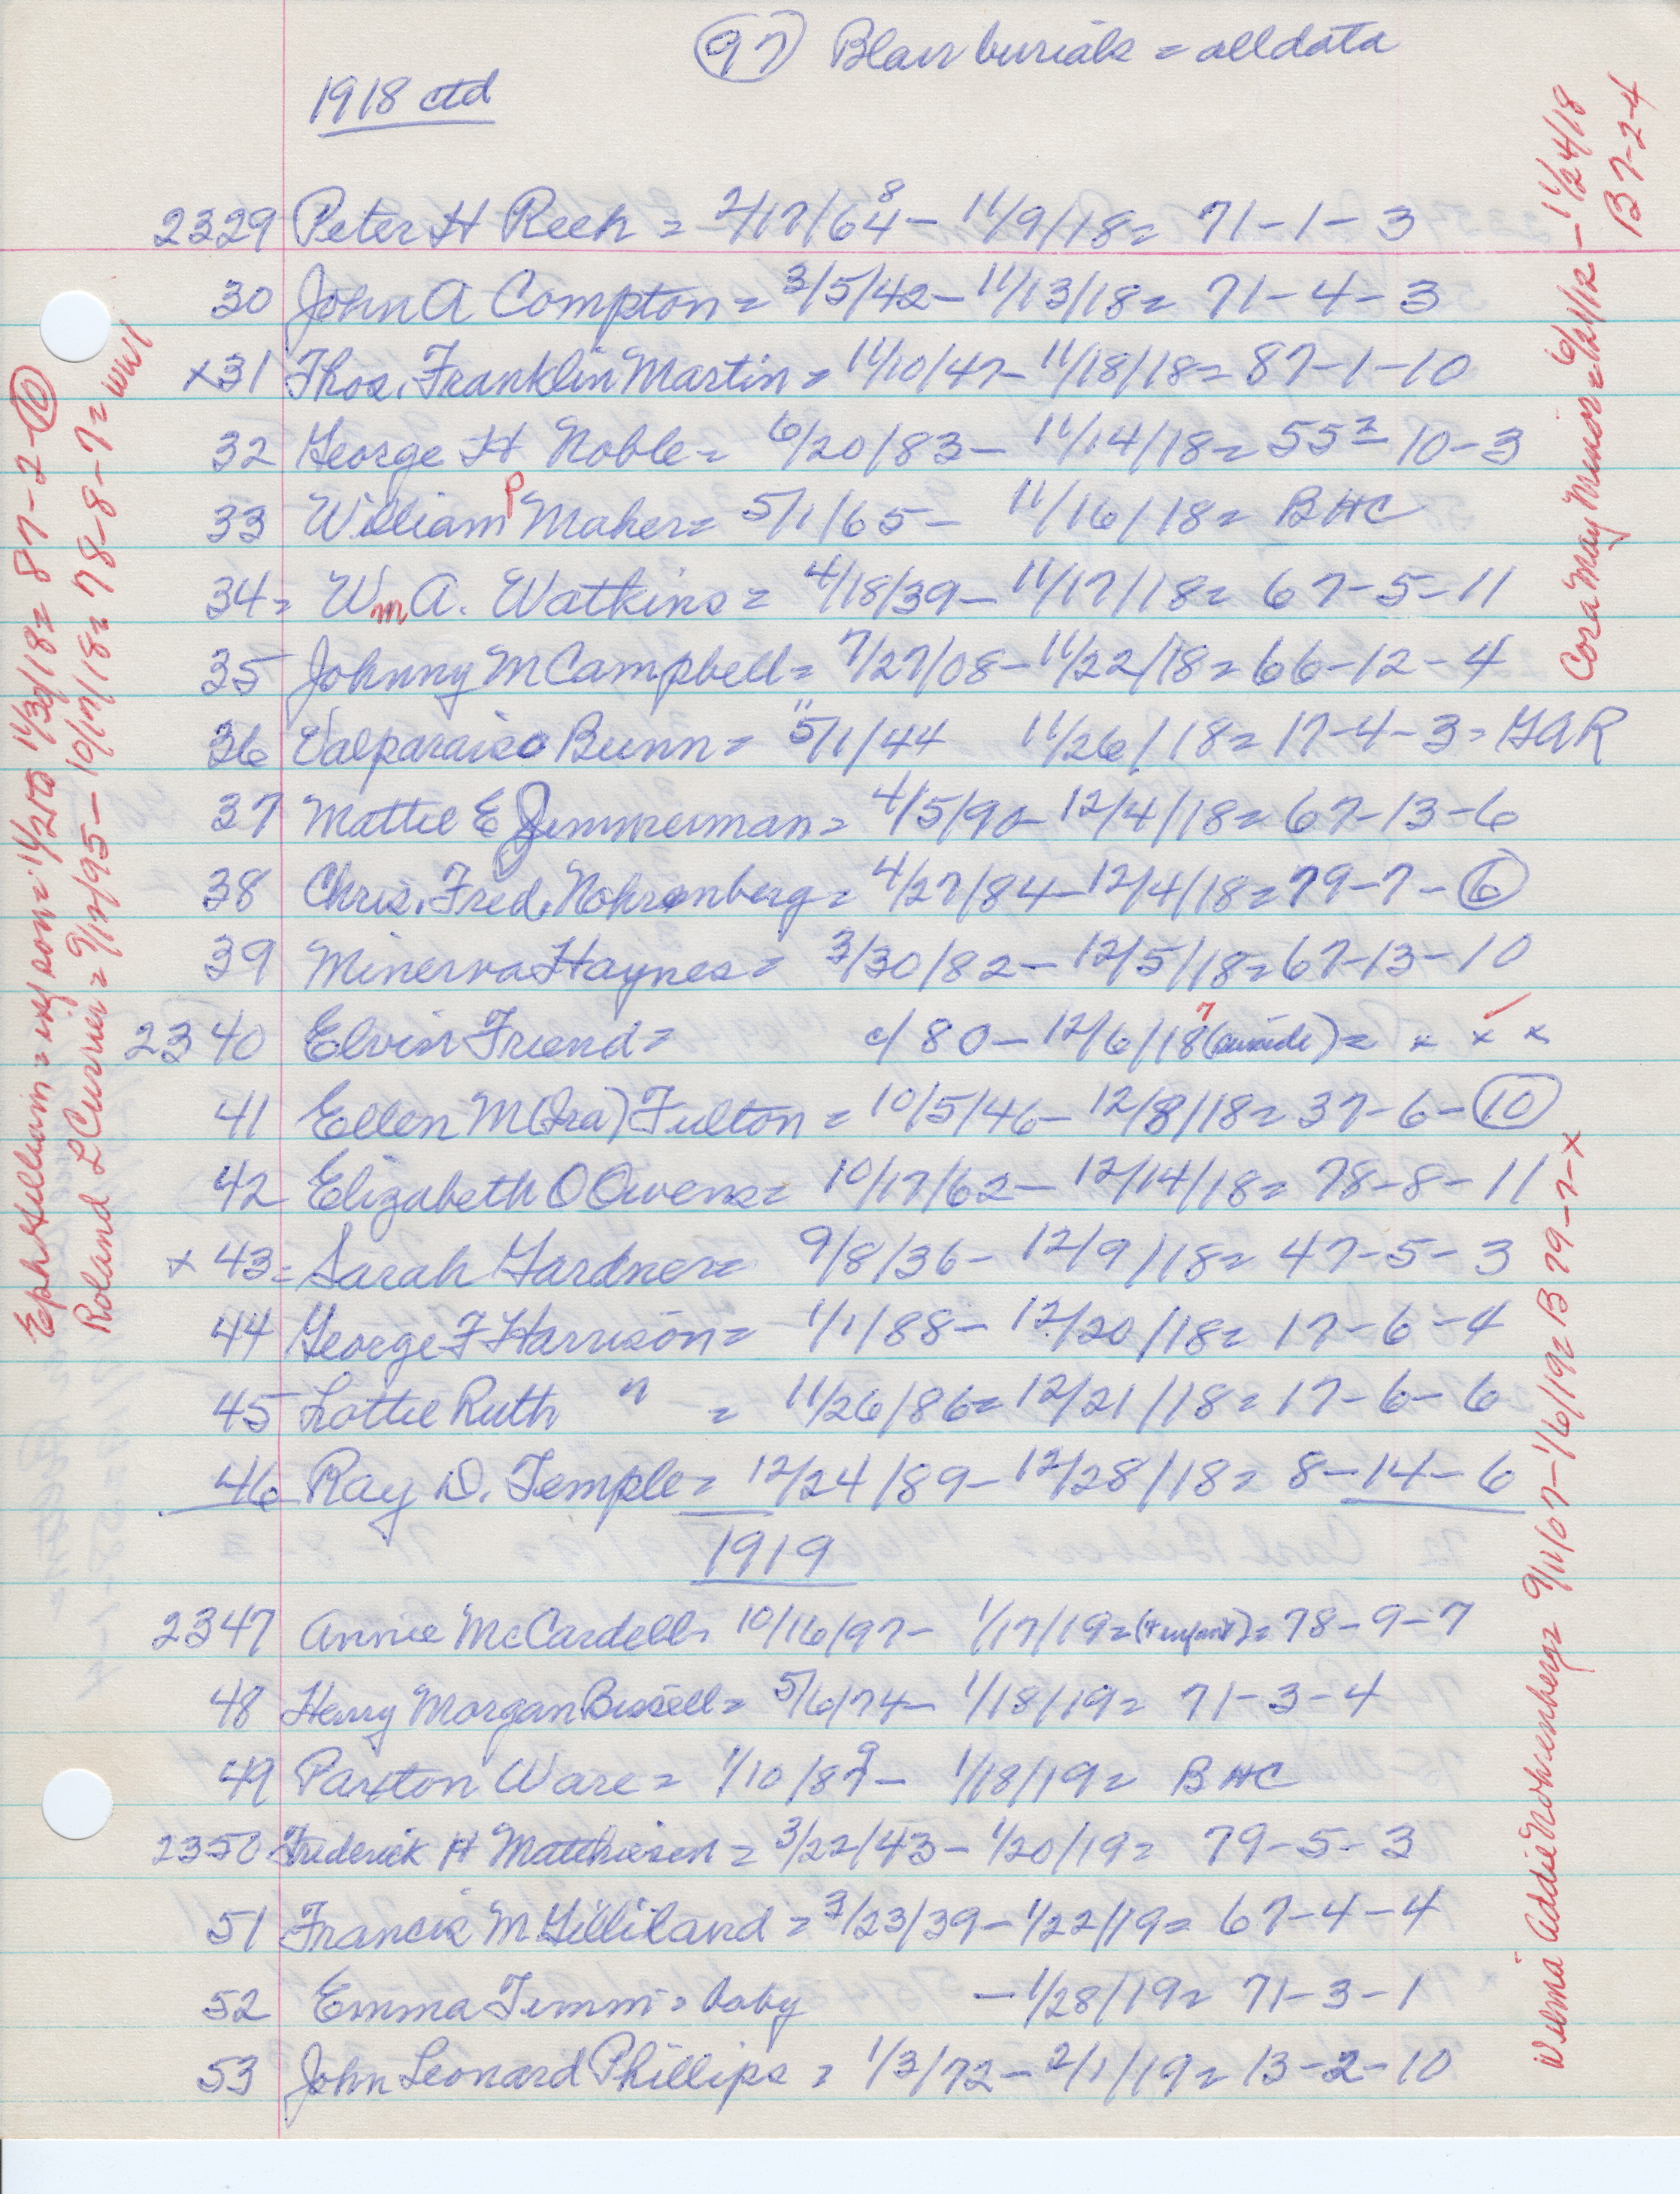 (97) Blair burials = all data
1918 ctd
2329 Peter H Reeh = 2/17/64 8 - 11/9/18 = 71-1-3
30 John A Compton = 3/5/42 - 11/13/18 = 71-4-3
x31 Thos. Franklin Martin = 11/10/47 - 11/18/18 = 87-1-10
32 George H Noble = 6/20/83 - 11/14/18 = 55 2 - 10-3
33 William P Maher = 5/1/65 - 11/16/18 = BHC
34 = Wm A. Watkins = 4/18/39 - 11/17/18 = 67-5-11
35 Johnny M Campbell = 7/27/08 - 11/22/18 = 66-12-4
36 Valparaiso Bunn = "5/1/44 11/26/18 = 17-4-3 = GAR
37 Mattie E Zimmerman = 4/5/90 - 12/4/18 = 67-13-6
38 Chris. Fred. Nohrenberg = 4/27/84 - 12/4/18 = 79-7-(6)
39 Minerva Haynes = 3/30/82 - 12/5/18 = 67-13-10
2340 Elvin Friend = c/80 - 12/6/18 7 (suicide) = x x x
41 Ellen M (Ira) Fulton = 10/5/46 - 12/8/18 = 37-6-(10)
42 Elizabeth O Owens = 10/17/62 - 12/14/18 = 78-8-11
x 43 = Sarah Gardner = 9/8/36 - 12/9/18 = 47-5-3
44 George F Harrison = 1/1/88 - 12/20/18 = 17-6-4
45 Lottie Ruth " = 11/26/86 = 12/21/18 = 17-6-6
46 Ray D. Temple = 12/24/89 - 12/28/18 = 8-14-6
1919
2347 Annie McCardell, 10/16/97 - 1/17/19 = (+ infant) = 78-9-7
48 Henry Morgan Bissell = 5/6/74 - 1/18/19 = 71-3-4
49 Paxton Ware = 1/10/87 9 - 1/18/19 = BHC
2350 Frederick H Matthiesen = 3/22/43 - 1/20/19 = 79-5-3
51 Francis M Gilliland = 3/23/39 - 1/22/19 = 67-4-4
52 Emma Timm = baby - 1/28/19 = 71-3-1
53 John Leonard Phillips = 1/3/72 - 2/1/19 = 13-2-10
Eph Gilliam = son = 11/30/18 = 87-2-(10)
Roland L Currier = 9/12/95 - 10/17/18 = 78-8-7 = WWI
Cora May Minor = 6/21/12 - 11/24/18
B 7-2-4
Wilma Addie Nohrenberg = 9/11/07 - 1/6/19 = B 79-7-x